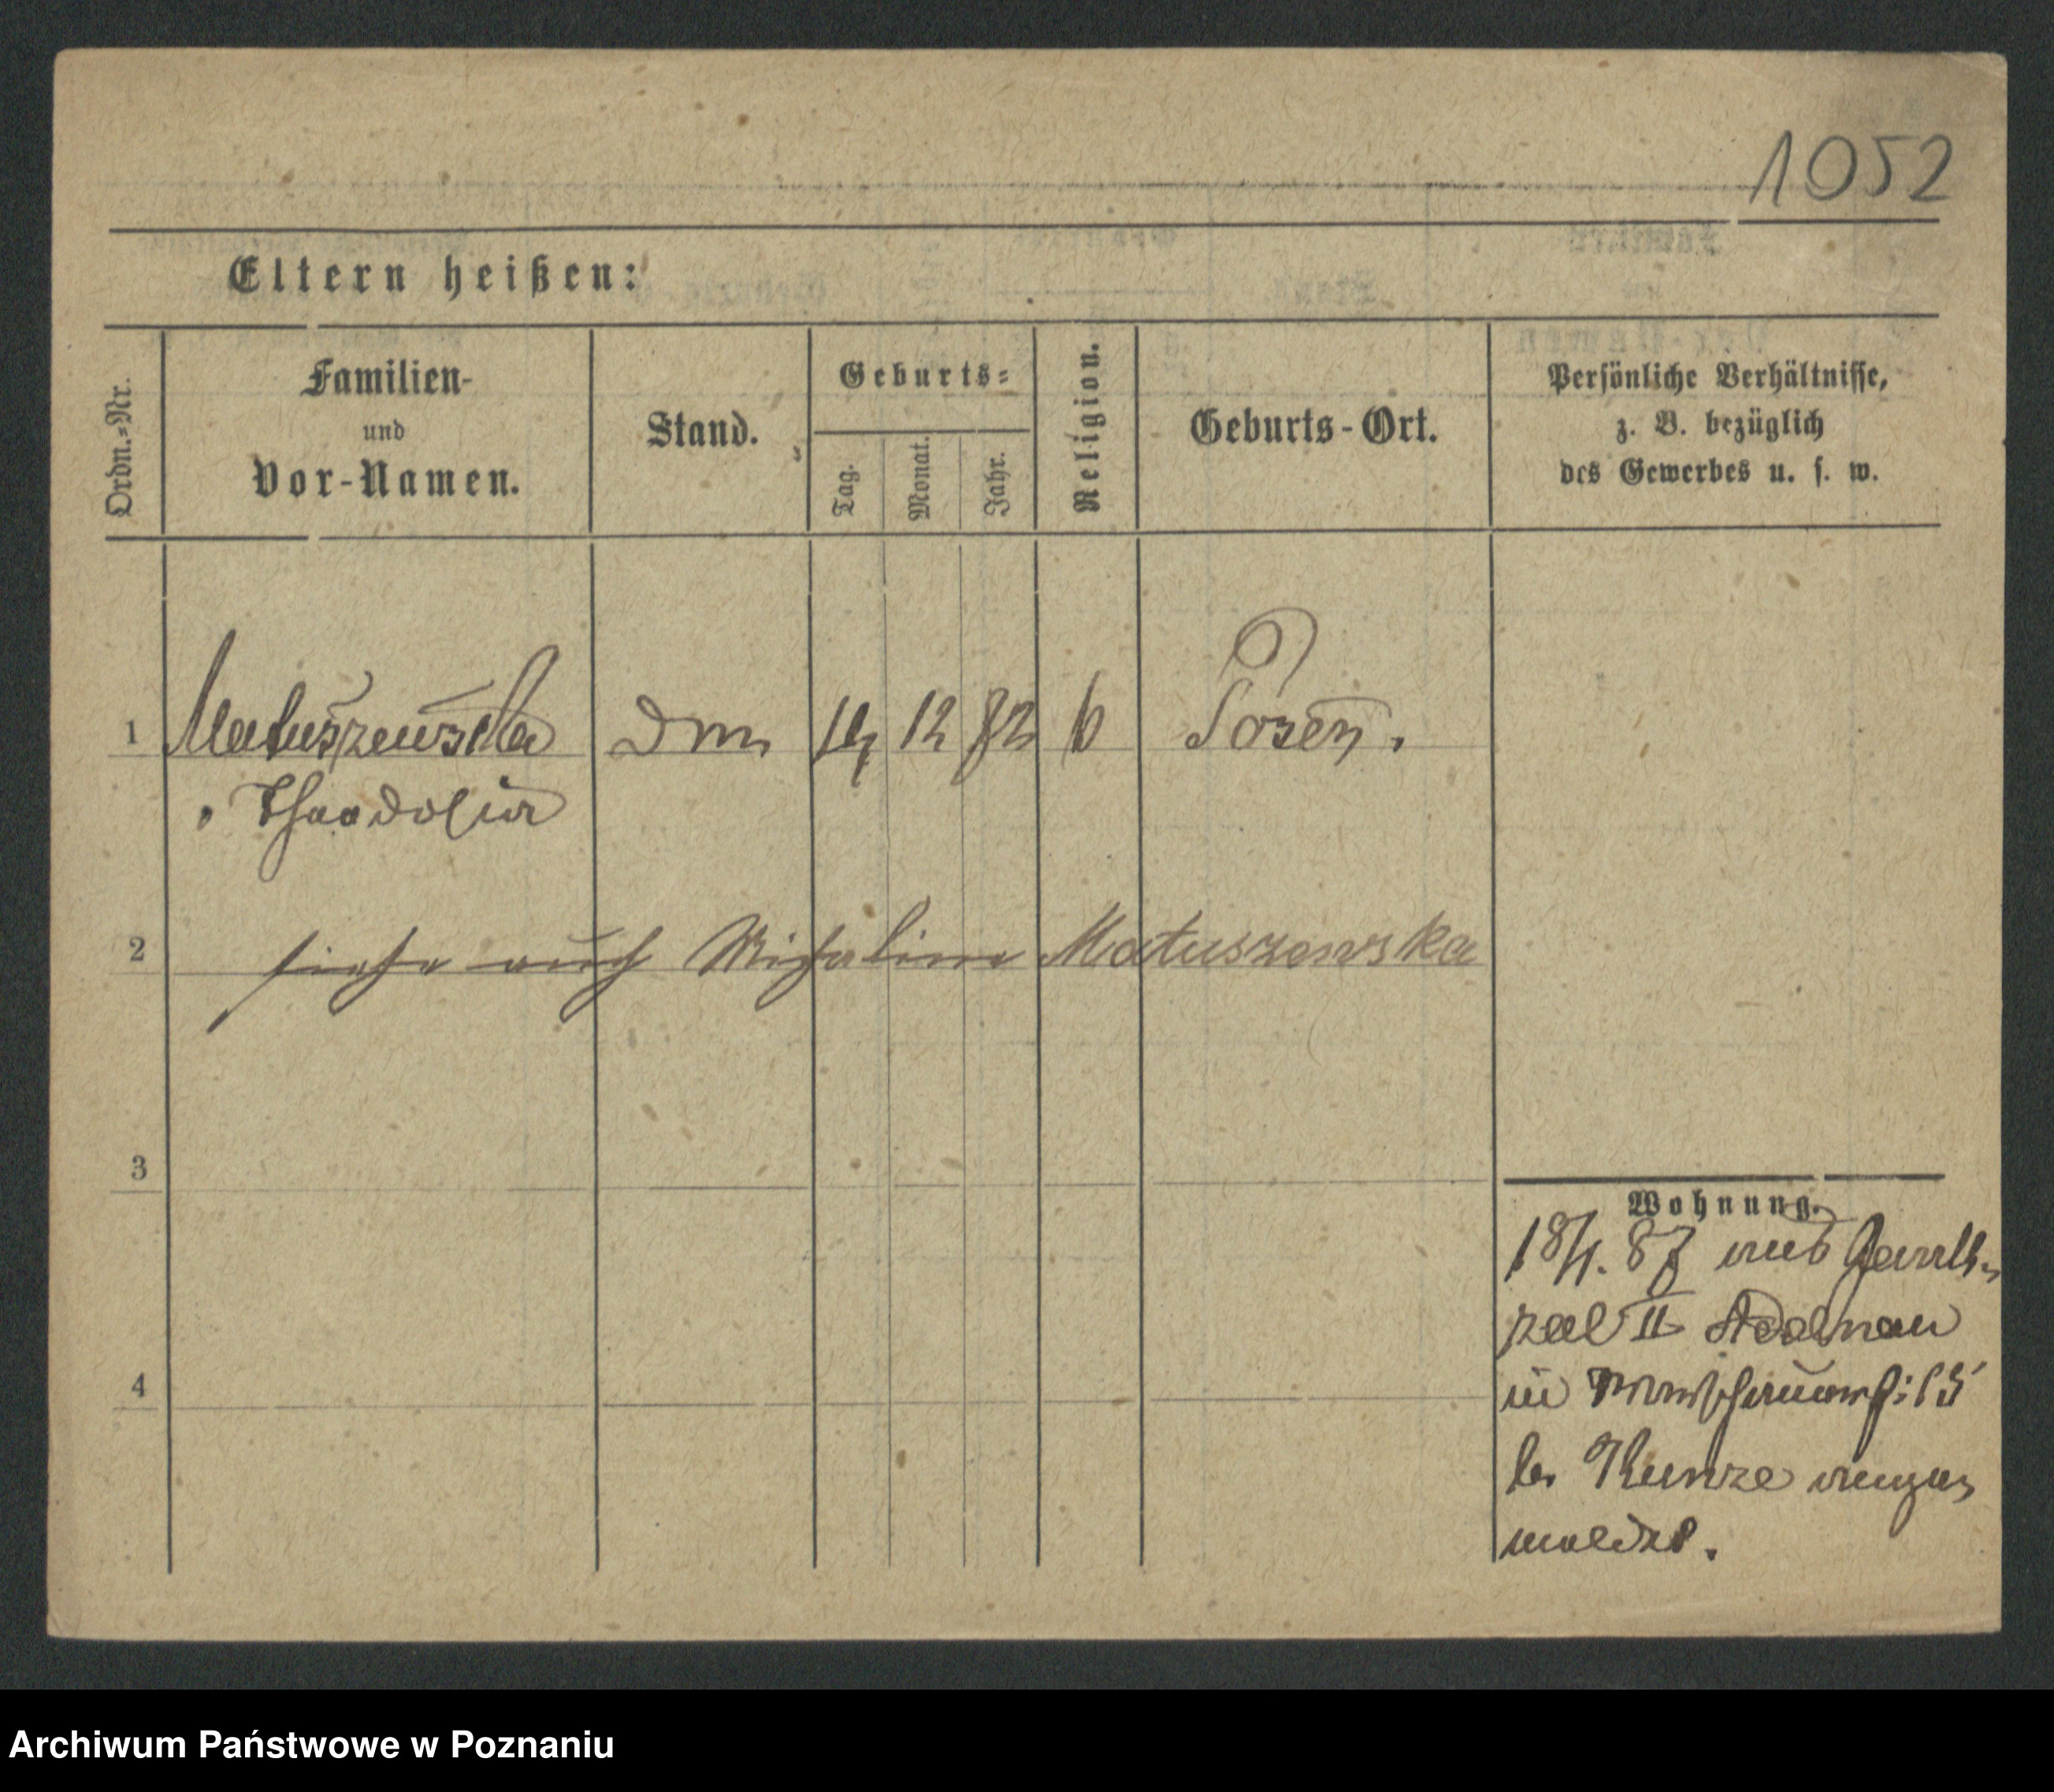 1052
Eltern heißen:
Ordn.=Nr.
Familien-
und
Vor-Namen.
Stand.
Geburts=
Tag.
Monat.
Jahr.
Religion.
Geburts-Ort.
Persönliche Verhältnisse,
z. B. bezüglich
des Gewerbes u. s. w.
1 Matuszewska 14 12 Posen.
Theodosia
2 siehe auch Michalina Matuszewska
3
4
Wohnung.
18/1. 87 aus
II Adelnau
in 15
bei Kunze ange
meldet.
Archiwum Państwowe w Poznaniu